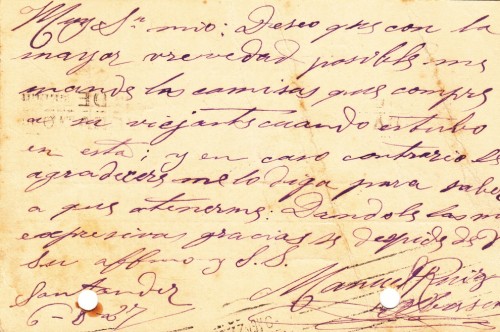 Muy Sr mio: Deseo que con la
mayor vrevedad posible me
mande las camisas que compre
a su viejante cuando estubo
en esta; y en caso contrario le
agradecere me lo diga para saber
a que atenerme. Dandole las m
expresivas gracias se despide de V
su affmo y S.S.
Manuel Ruiz
Santander
6-8-27